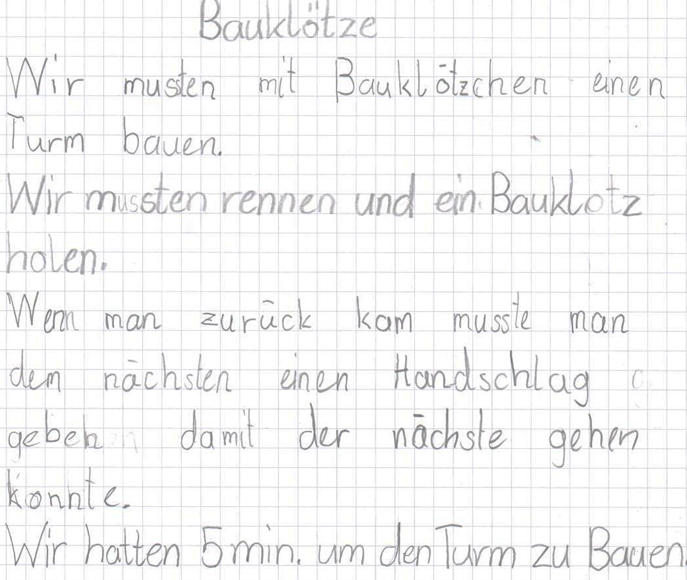 Bauklötze
Wir musten mit Bauklötzchen einen
Turm bauen.
Wir mussten rennen und ein Bauklotz
holen.
Wenn man zurück kam musste man
dem nächsten einen Handschlag
geben damit der nächste gehen
konnte.
Wir hatten 5 min. um den Turm zu Bauen